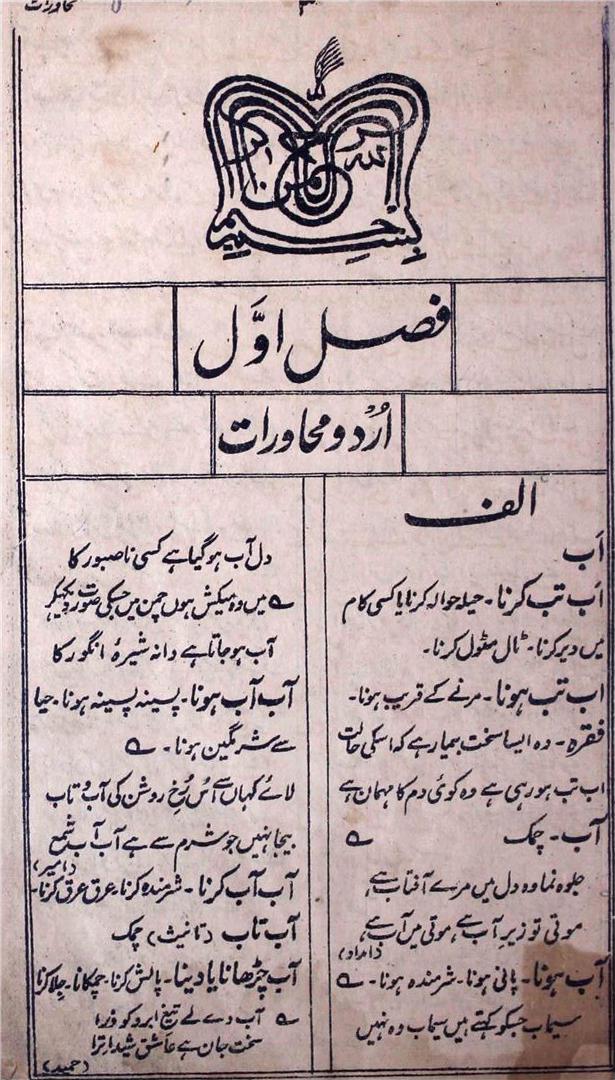 ۳
محاورات
بسم اللہ الرحمن الرحیم
فصل اوّل
اُردو محاورات
الف
اَب
اَب تب کرنا۔ حیلہ حوالہ کرنا یا کسی کام
میں دیر کرنا۔ ٹال مٹول کرنا۔
اب تب ہونا۔ مرنے کے قریب ہونا۔
فقرہ۔ وہ ایسا سخت بیمار ہے کہ اسکی حالت
اب تب ہو رہی ہے وہ کوئی دم کا مہمان ہے
آب۔ چمک ؎
جلوہ نما وہ دل میں مرے آفتاب ہے
موتی تو زیر آب ہے موتی میں آب ہے
(امداد)
آب ہونا۔ پانی ہونا۔ شرمندہ ہونا۔ ؎
سیماب جسکو کہتے ہیں سیماب وہ نہیں
دل آب ہو گیا ہے کسی ناصبور کا
؎ میں وہ میکش ہوں چمن میں جسکی صورت دیکھکر
آب ہو جاتا ہے دانہ شیرۂ انگور کا
آب آب ہونا۔ پسینہ پسینہ ہونا۔ حیا
سے شرمگین ہونا۔ ؎
لائے کہاں سے اُس رُخ روشن کی آب و تاب
بیجا نہیں جو شرم سے ہے آب آب شمع
(امیر)
آب آب کرنا۔ شرمندہ کرنا۔ عرق عرق کرنا۔
آب تاب (تانیث) چمک
آب چڑھانا یا دینا۔ پالش کرنا۔ چمکانا۔ جلا کرنا
؎ آب دے لے تیغ ابرو کو ذرا
سخت جان ہے عاشق شیدا ترا
(حمید)